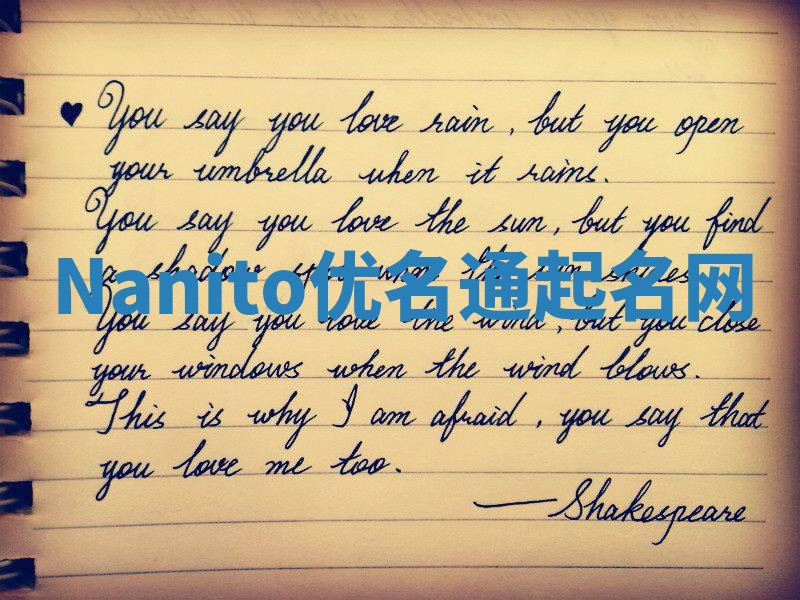 ♥ You say you love rain, but you open
your umbrella when it rains.
You say you love the sun, but you find
a shadow spot when the sun shines.
Nanito优名通起名网
You say you love the wind, but you close
your windows when the wind blows.
This is why I am afraid, you say that
you love me too.
—Shakespeare